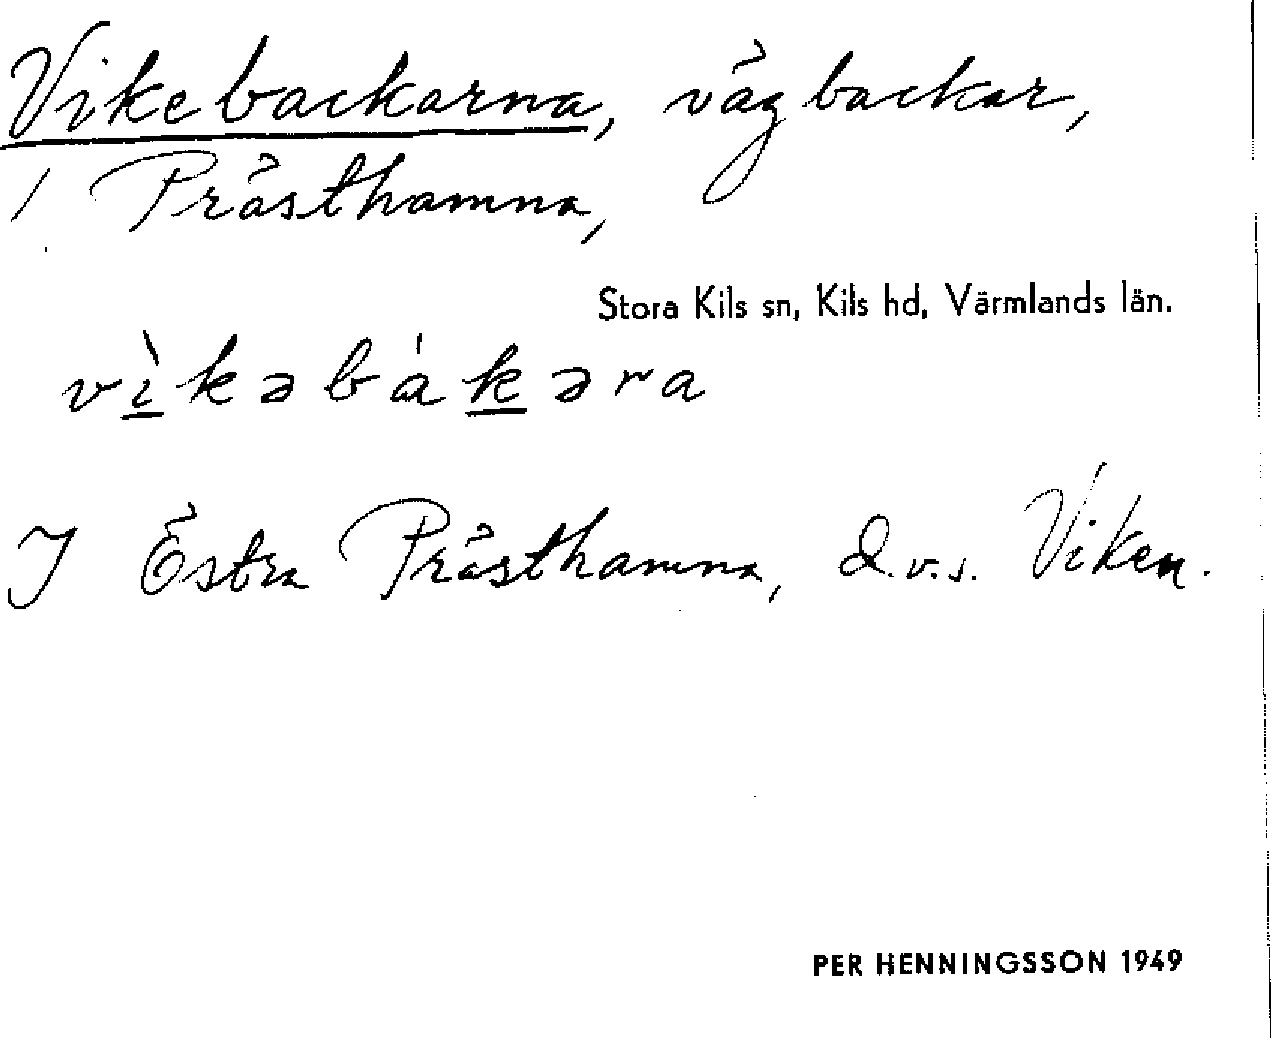 Vikebackarna, vägbackar,
/ Prästhamna,
Stora Kils sn, Kils hd, Värmlands län.
vìkəbákəra
I Östra Prästhamna, d.v.s. Viken.
PER HENNINGSSON 1949